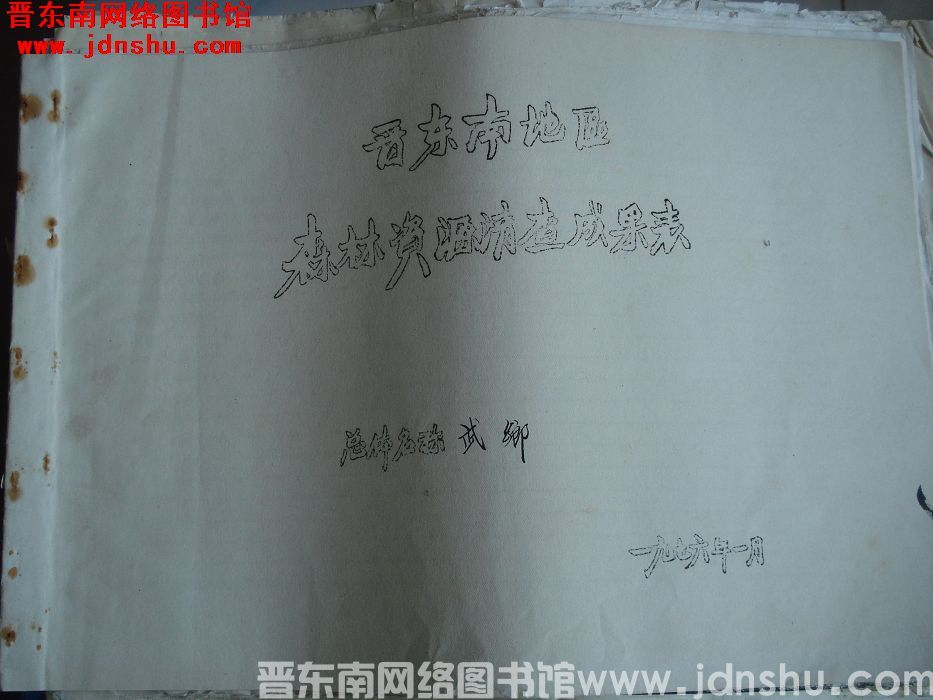 晋东南网络图书馆
www.jdnshu.com
晋东南地区
森林资源清查成果表
总体名称 武鄉
一九七六年一月
晋东南网络图书馆 www.jdnshu.com